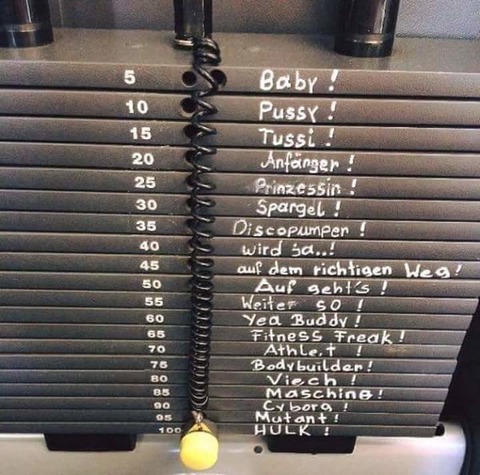 5 Baby !
10 Pussy !
15 Tussi !
20 Anfänger !
25 Prinzessin !
30 Spargel !
35 Discopumper !
40 wird ja..!
45 auf dem richtigen Weg!
50 Auf geht's !
55 Weiter so !
60 Yea Buddy !
65 Fitness Freak !
70 Athlet !
75 Bodybuilder!
80 Viech !
85 Maschine!
90 Cyborg !
95 Mutant!
100 HULK !